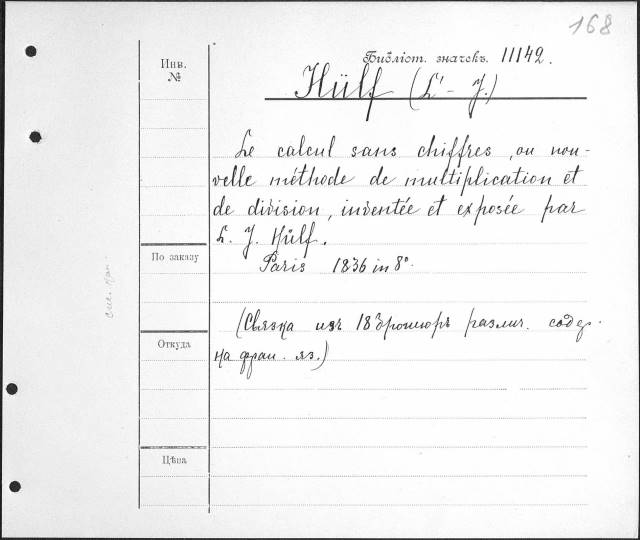 168
Библіот. значекъ. 11142.
Инв.
№
Hülf (L' - J.)
Le calcul sans chiffres, ou nou-
velle méthode de multiplication et
de division, inventée et exposée par
L. J. Hülf.
Paris 1836 in 8°.
По заказу
(Связка изъ 18 брошюръ различ. содер.
на фран. яз.)
Откуда
Цѣна